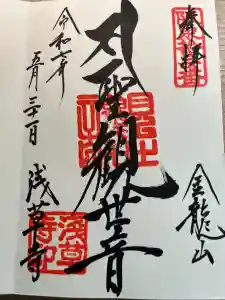 奉拝
金龍山
聖観世音
令和元年
五月三十日
浅草寺
浅草寺印